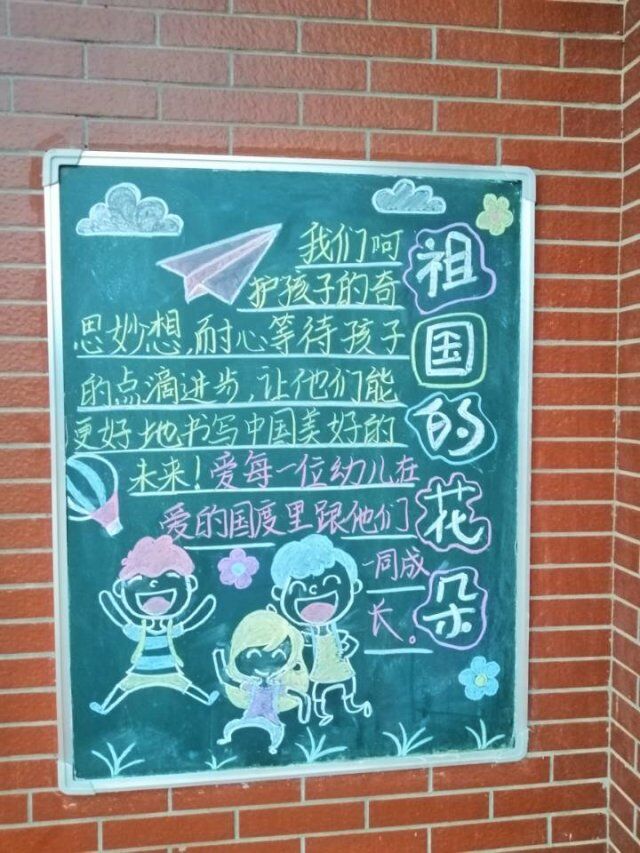 祖国的花朵
我们呵
护孩子的奇
思妙想,耐心等待孩子
的点滴进步,让他们能
更好地书写中国美好的
未来!爱每一位幼儿在
爱的国度里跟他们
一同成
长。